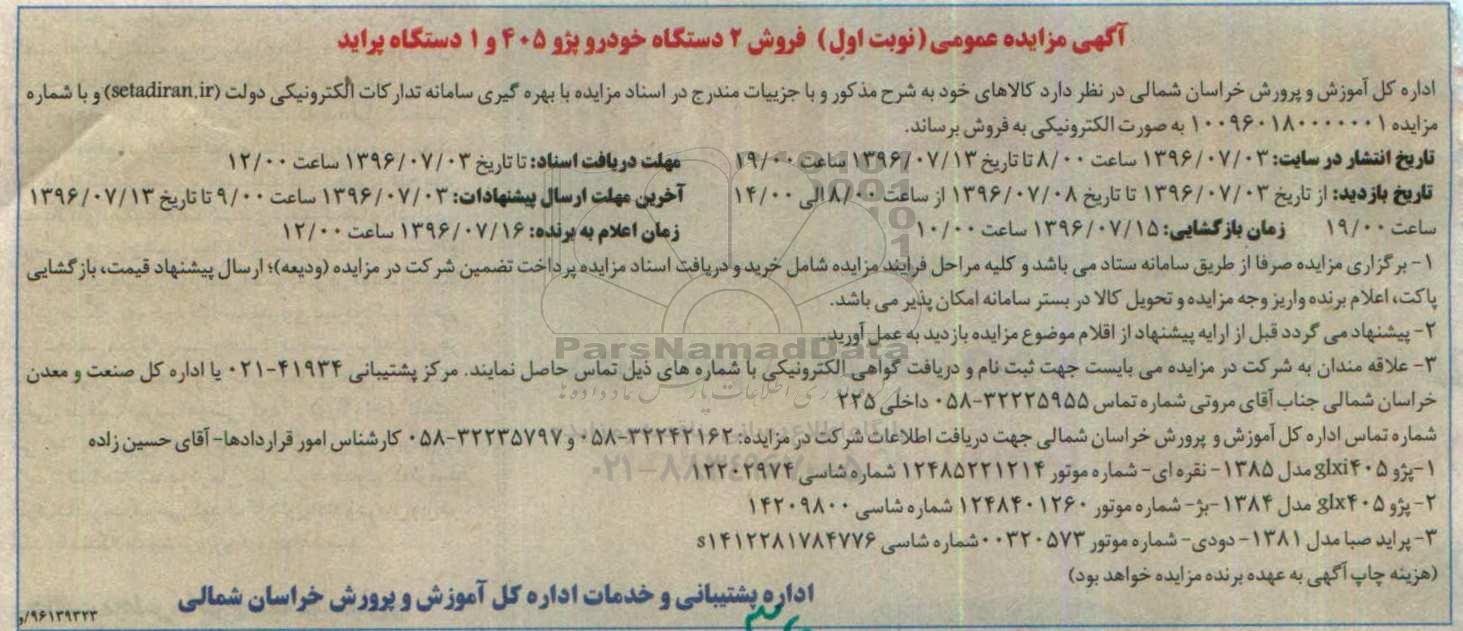 آگهی مزایده عمومی (نوبت اول) فروش ۲ دستگاه خودرو پژو ۴۰۵ و ۱ دستگاه پراید
اداره کل آموزش و پرورش خراسان شمالی در نظر دارد کالاهای خود به شرح مذکور و با جزییات مندرج در اسناد مزایده با بهره گیری سامانه تدارکات الکترونیکی دولت (setadiran.ir) و با شماره
مزایده ۱۰۰۹۶۰۱۸۰۰۰۰۰۰۱ به صورت الکترونیکی به فروش برساند.
تاریخ انتشار در سایت: ۱۳۹۶/۰۷/۰۳ ساعت ۸/۰۰ تا تاریخ ۱۳۹۶/۰۷/۱۳ ساعت ۱۹/۰۰ مهلت دریافت اسناد: تا تاریخ ۱۳۹۶/۰۷/۰۳ ساعت ۱۲/۰۰
تاریخ بازدید: از تاریخ ۱۳۹۶/۰۷/۰۳ تا تاریخ ۱۳۹۶/۰۷/۰۸ از ساعت ۸/۰۰ الی ۱۴/۰۰ آخرین مهلت ارسال پیشنهادات: ۱۳۹۶/۰۷/۰۳ ساعت ۹/۰۰ تا تاریخ ۱۳۹۶/۰۷/۱۳
ساعت ۱۹/۰۰ زمان بازگشایی: ۱۳۹۶/۰۷/۱۵ ساعت ۱۰/۰۰ زمان اعلام به برنده: ۱۳۹۶/۰۷/۱۶ ساعت ۱۲/۰۰
۱- برگزاری مزایده صرفا از طریق سامانه ستاد می باشد و کلیه مراحل فرایند مزایده شامل خرید و دریافت اسناد مزایده پرداخت تضمین شرکت در مزایده (ودیعه)؛ ارسال پیشنهاد قیمت، بازگشایی
پاکت، اعلام برنده واریز وجه مزایده و تحویل کالا در بستر سامانه امکان پذیر می باشد.
۲- پیشنهاد می گردد قبل از ارایه پیشنهاد از اقلام موضوع مزایده بازدید به عمل آورید.
ParsNamadData
۳- علاقه مندان به شرکت در مزایده می بایست جهت ثبت نام و دریافت گواهی الکترونیکی با شماره های ذیل تماس حاصل نمایند. مرکز پشتیبانی ۴۱۹۳۴-۰۲۱ یا اداره کل صنعت و معدن
خراسان شمالی جناب آقای مروتی شماره تماس ۳۲۲۲۵۹۵۵-۰۵۸ داخلی ۲۲۵
شماره تماس اداره کل آموزش و پرورش خراسان شمالی جهت دریافت اطلاعات شرکت در مزایده: ۳۲۲۴۲۱۶۲-۰۵۸ و ۳۲۲۳۵۷۹۷-۰۵۸ کارشناس امور قراردادها- آقای حسین زاده
۱-پژو ۴۰۵ glxi مدل ۱۳۸۵- نقره ای- شماره موتور ۱۲۴۸۵۲۲۱۲۱۴ شماره شاسی ۱۲۲۰۲۹۷۴
۲- پژو ۴۰۵ glx مدل ۱۳۸۴ -بژ- شماره موتور ۱۲۴۸۴۰۱۲۶۰ شماره شاسی ۱۴۲۰۹۸۰۰
۳- پراید صبا مدل ۱۳۸۱- دودی- شماره موتور ۰۰۳۲۰۵۷۳ شماره شاسی s۱۴۱۲۲۸۱۷۸۴۷۷۶
(هزینه چاپ آگهی به عهده برنده مزایده خواهد بود)
اداره پشتیبانی و خدمات اداره کل آموزش و پرورش خراسان شمالی
۹۶۱۳۹۳۲۳/و